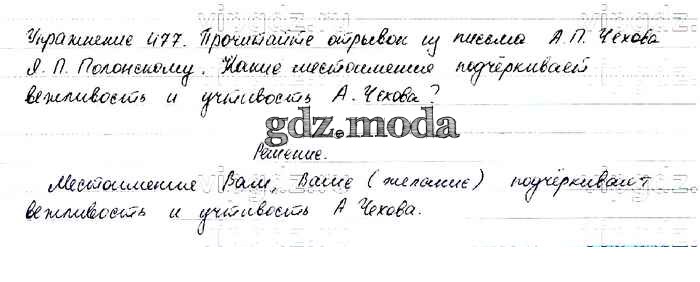 Упражнение 477. Прочитайте отрывок из письма А.П. Чехова
Я. П. Полонскому. Какие местоимения подчёркивает
вежливость и учтивость А. Чехова?
gdz.moda
Решение.
Местоимение Вам, Ваше (желание) подчёркивают
вежливость и учтивость А Чехова.